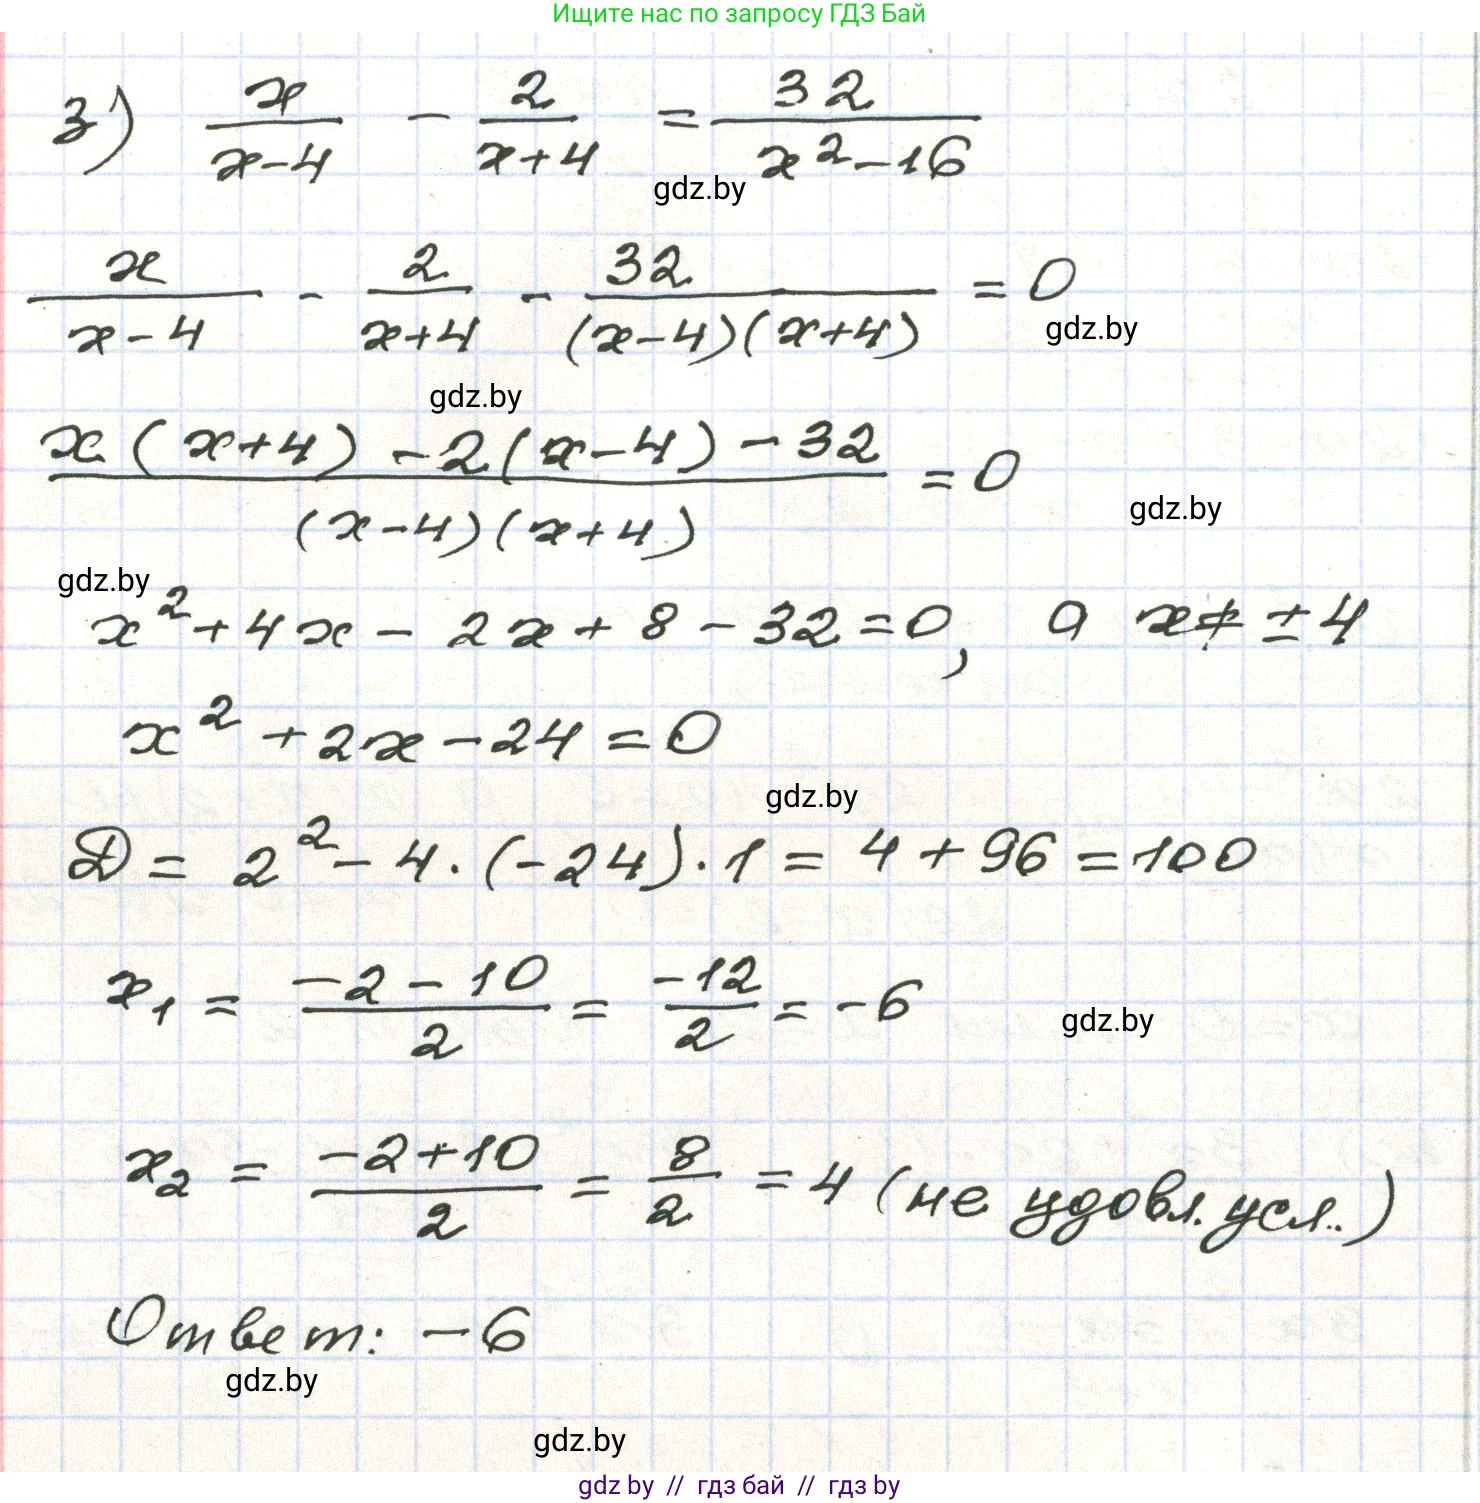 Ищите нас по запросу ГДЗ Бай
з) x/(x-4) - 2/(x+4) = 32/(x²-16)
gdz.by
x/(x-4) - 2/(x+4) - 32/((x-4)(x+4)) = 0
gdz.by
gdz.by
(x(x+4) - 2(x-4) - 32)/((x-4)(x+4)) = 0
gdz.by
gdz.by
x² + 4x - 2x + 8 - 32 = 0, а x ≠ ± 4
x² + 2x - 24 = 0
gdz.by
D = 2² - 4 · (-24) · 1 = 4 + 96 = 100
x₁ = (-2 - 10)/2 = -12/2 = -6
gdz.by
x₂ = (-2 + 10)/2 = 8/2 = 4 (не удовл. усл.)
Ответ: -6
gdz.by
gdz.by
gdz by // гдз бай // gdz by